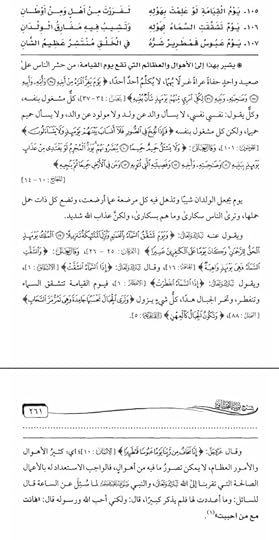 ١٠٥. يَوْمُ الْقِيَامَةِ لَوْ عَلِمْتَ بِهَوْلِهِ لَفَرَرْتَ مِنْ أَهْلٍ وَمِنْ أَوْطَانِ
١٠٦. يَوْمٌ تَشَقَّقَتِ السَّمَاءُ لِهَوْلِهِ وَتَشِيبُ فِيهِ مَفَارِقُ الْوِلْدَانِ
١٠٧. يَوْمٌ عَبُوسٌ قَمْطَرِيرٌ شَرُّهُ فِي الْخَلْقِ مُنْتَشِرٌ عَظِيمُ الشَّانِ
يشير بهذا إلى الأهوال والعظائم التي تقع يوم القيامة، من حشر الناس على
صعيد واحدٍ حفاة عراة غرلًا بُهمًا، لا يكلِّم أحدٌ أحدًا، ﴿يَوْمَ يَفِرُّ الْمَرْءُ مِنْ أَخِيهِ وَأُمِّهِ وَأَبِيهِ
وَصَاحِبَتِهِ وَبَنِيهِ لِكُلِّ امْرِئٍ مِنْهُمْ يَوْمَئِذٍ شَأْنٌ يُغْنِيهِ﴾ [عبس: ٣٤-٣٧]، كل مشغول بنفسه،
وكلٌّ يقول: نفسي نفسي، لا يسأل والد عن ولد ولا مولود عن والد، ولا يسأل حميم
حميما، ولكن كل مشغول بنفسه ﴿فَإِذَا نُفِخَ فِي الصُّورِ فَلَا أَنْسَابَ بَيْنَهُمْ يَوْمَئِذٍ وَلَا يَتَسَاءَلُونَ﴾
[المؤمنون: ١٠١]، ﴿وَلَا يَسْأَلُ حَمِيمٌ حَمِيمًا يُبَصَّرُونَهُمْ يَوَدُّ الْمُجْرِمُ لَوْ يَفْتَدِي مِنْ عَذَابِ
يَوْمِئِذٍ بِبَنِيهِ وَصَاحِبَتِهِ وَأَخِيهِ وَفَصِيلَتِهِ الَّتِي تُؤْوِيهِ وَمَنْ فِي الْأَرْضِ جَمِيعًا ثُمَّ يُنْجِيهِ﴾
[المعارج: ١٠-١٤]
يوم يجعل الولدان شيبًا وتذهل فيه كل مرضعة عما أرضعت، وتضع كل ذات حمل
حملها، وترى الناس سكارى وما هم بسكارى، ولكنَّ عذاب الله شديد.
ويقول عنه: ﴿وَيَوْمَ تَشَقَّقُ السَّمَاءُ بِالْغَمَامِ وَنُزِّلَ الْمَلَائِكَةُ تَنْزِيلًا الْمُلْكُ يَوْمَئِذٍ
الْحَقُّ لِلرَّحْمَنِ وَكَانَ يَوْمًا عَلَى الْكَافِرِينَ عَسِيرًا﴾ [الفرقان: ٢٥-٢٦]، ﴿وَانْشَقَّتِ
السَّمَاءُ فَهِيَ يَوْمَئِذٍ وَاهِيَةٌ﴾ [الحاقة: ١٦]، وقال: ﴿إِذَا السَّمَاءُ انْشَقَّتْ﴾ [الانشقاق: ١]،
ويقول: ﴿إِذَا السَّمَاءُ انْفَطَرَتْ﴾ [الانفطار: ١]، فيوم القيامة تتشقق السماء
وتنفطر، وتخر الجبال هدًّا، كلُّ شيءٍ يزول ﴿وَتَرَى الْجِبَالَ تَحْسَبُهَا جَامِدَةً وَهِيَ تَمُرُّ مَرَّ السَّحَابِ﴾
[النمل: ٨٨]، ﴿وَتَكُونُ الْجِبَالُ كَالْعِهْنِ﴾ [القارعة: ٥].
٢٦١
وقال: ﴿إِنَّا نَخَافُ مِنْ رَبِّنَا يَوْمًا عَبُوسًا قَمْطَرِيرًا﴾ [الإنسان: ١٠] أي: كثيرُ الأهوال
والأمور العظام، لا يمكن تصورُ ما فيه من أهوال، فالواجب الاستعداد له بالأعمال
الصالحة التي تقربنا إلى الله، والنبي لما سُئل عن الساعة قال
للسائل: وما أعددت لها؟ فلم يذكر كبيرًا، قال: ولكني أحب الله ورسوله قال: «فأنت
مع من أحببت»(١).